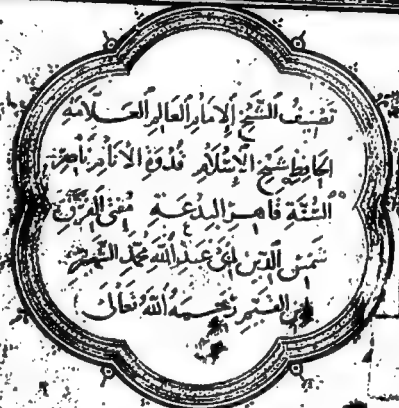 تصنيف الشيخ الإمام العالم العلامة
الحافظ شيخ الإسلام قدوة الأنام ناصر
السنة قاهر البدعة مفتي الفرق
شمس الدين أبي عبد الله محمد الشهير
بابن القيم رحمه الله تعالى